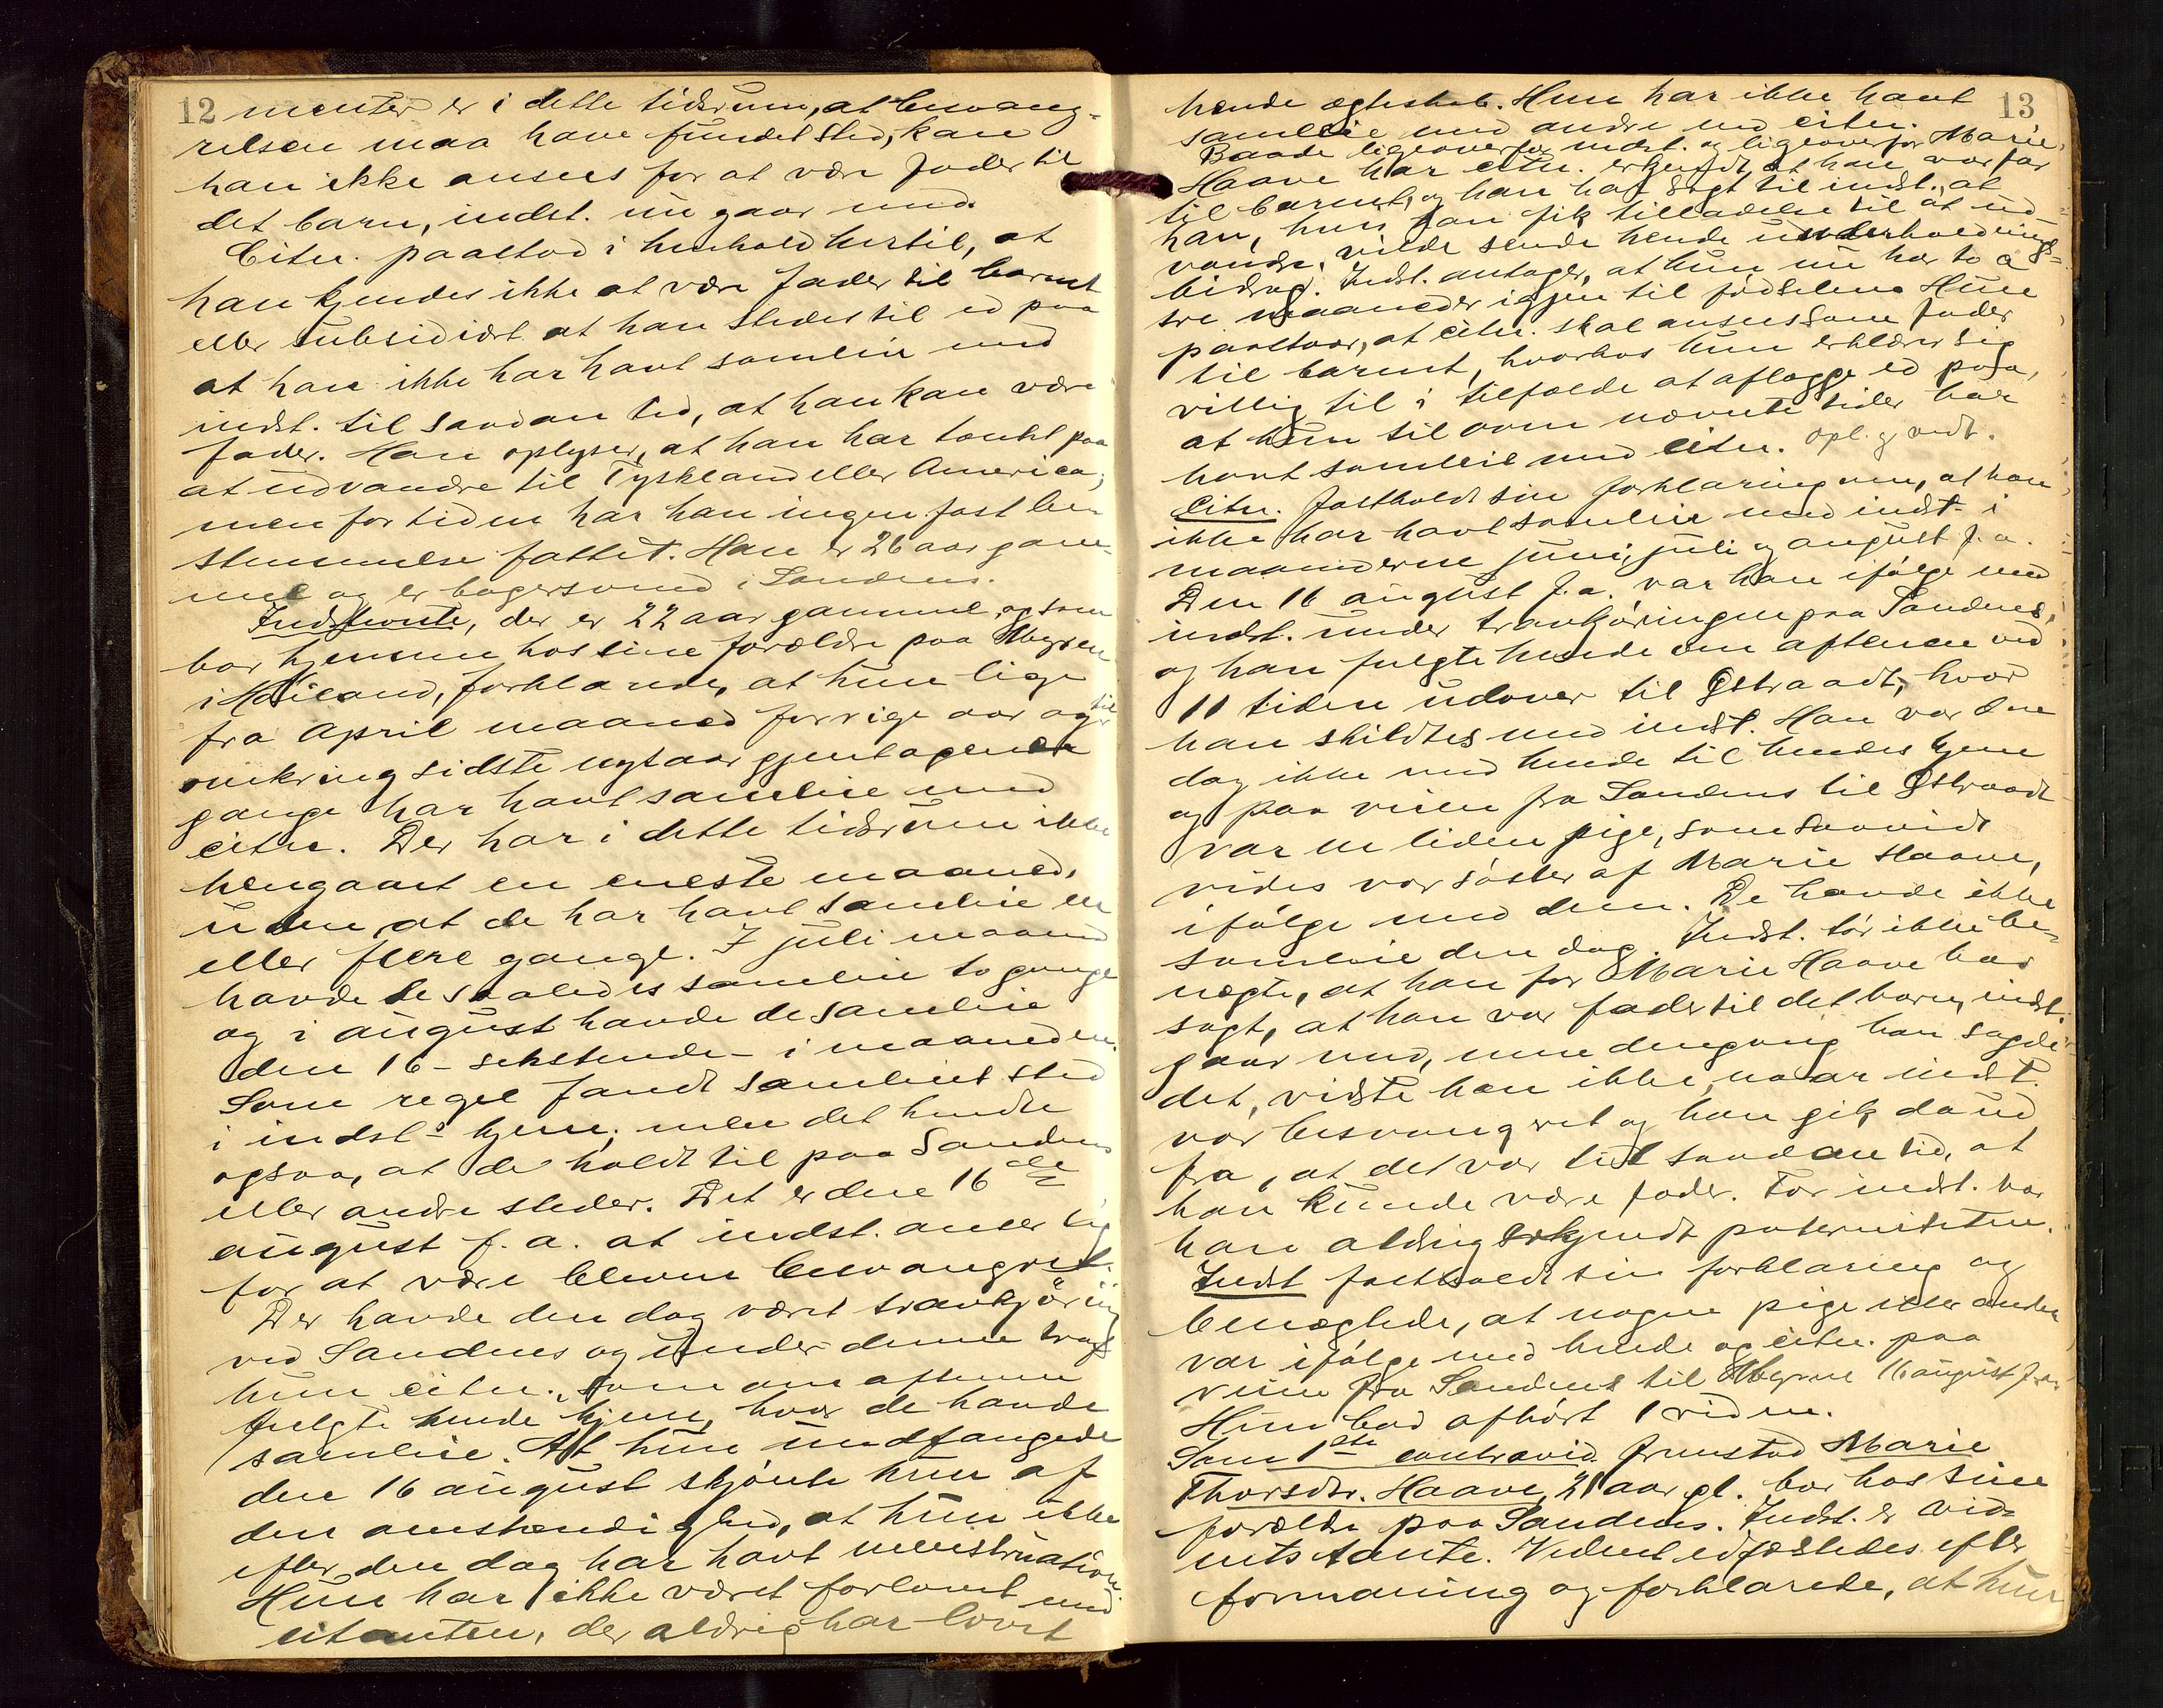 12 menter er i dette tidsrum, at besvang-
relsen maa have fundet sted, kan
han ikke ansees for at være fader til
det barn, indst. nu gaar med.
Citn. paastod i henhold hertil, at
han kjendes ikke at være fader til barnet
eller subsidiært at han stedes til ed paa
at han ikke har havt samleie med
indst. til saadan tid, at han kan være
fader. Han oplyser, at han har tænkt paa
at udvandre til Tyskland eller America,
men for tiden har han ingen fast be-
stemmelse fattet. Han er 26 aar gam-
mel og er bagersvend i Sandnes.
Indstevnte, der er 22 aar gammel, og som
bor hjemme hos sine forældre paa
i Høiland, forklarede, at hun lige
fra April maaned forrige aar og til
omkring sidste nytaar gjentagende
gange har havt samleie med
citn. Der har i dette tidsrum ikke
hengaaet en eneste maaned,
uden at de har havt samleie en
eller flere gange. I juli maaned
havde de saaledes samleie to gange
og i august havde de samleie
den 16 - sekstende - i maaneden.
Som regel fandt samleiet sted
i indst-s hjem; men det hendte
ogsaa, at de holdt til paa Sandnes
eller andre steder. Det er den 16de
august f. a. at indst. anser sig
for at være bleven besvangret.
Der havde den dag været travkjøring
ved Sandnes og under denne traf
hun citn., som om aftenen
fulgte hende hjem, hvor de havde
samleie. At hun undfangede
den 16 august skjønte hun af
den omstændighed, at hun ikke
efter den dag har havt menstruation.
Hun har ikke været forlovet med
citanten, der aldrig har lovet
hende ægteskab. Hun har ikke havt 13
samleie med andre end citn.
Baade ligeoverfor indst. og ligeoverfor Marie
Haave har citn. erkjendt, at han var far
til barnet, og han har sagt til indst., at
han, hvis han fik tilladelse til at ud-
vandre, vilde sende hende underholdnings-
bidrag. Indst. antager, at hun nu har to à
tre maaneder igjen til fødselen. Hun
paastaar, at citn. skal ansees som fader
til barnet, hvorhos hun erklærer sig
villig til i tilfælde at aflægge ed paa,
at hun til ovennævnte tider har
havt samleie med citn. Opl. og vedt.
Citn. fastholdt sin forklaring om, at han
ikke har havt samleie med indst. i
maanederne juni, juli og august f. a.
Den 16 august f. a. var han ifølge med
indst. under travkjøringen paa Sandnes,
og han fulgte hende om aftenen ved
11 tiden udover til Østraadt, hvor
han skildtes med indst. Han var den
dag ikke med hende til hendes hjem
og paa veien fra Sandnes til Østraadt
var en liden pige, som saavidt
vides var søster af Marie Haave,
ifølge med dem. De havde ikke
samleie den dag. Indst. tør ikke be-
nægte, at han for Marie Haave har
sagt, at han var fader til det barn, indst.
gaar med, men dengang han sagde
det, vidste han ikke, naar indst.
var besvangret og han gik da ud
fra, at det var til saadan tid, at
han kunde være fader. For indst. har
han aldrig erkjendt paterniteten.
Indst fastholdt sin forklaring og
benægtede, at nogen pige eller anden
var ifølge med hende og citn. paa
veien fra Sandnes til 16 august f. a.
Hun bad afhørt 1 vidne.
Som 1ste contravid. fremstod Marie
Thorsdtr. Haave, 21 aar gl. bor hos sine
forældre paa Sandnes. Indst. er vid-
nets tante. Vidnet edfæstedes efter
formaning og forklarede, at hun